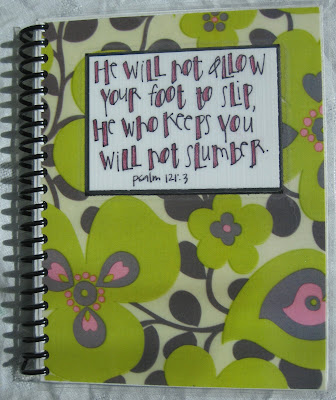 He will not allow
your foot to slip,
He who keeps you
will not slumber.
psalm 121:3